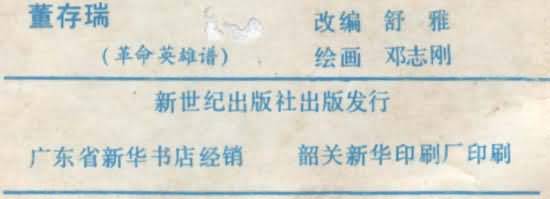 董存瑞 改编 舒雅
（革命英雄谱） 绘画 邓志刚
新世纪出版社出版发行
广东省新华书店经销 韶关新华印刷厂印刷